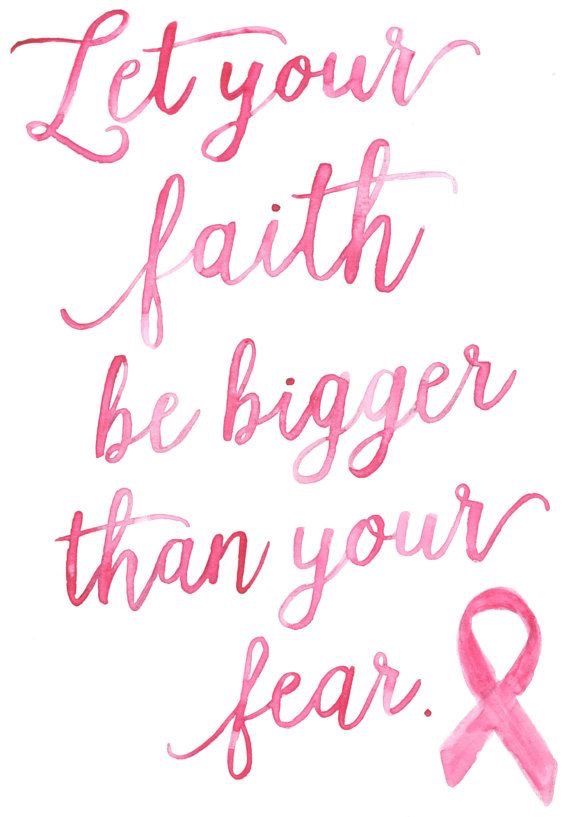 Let your
faith
be bigger
than your
fear.